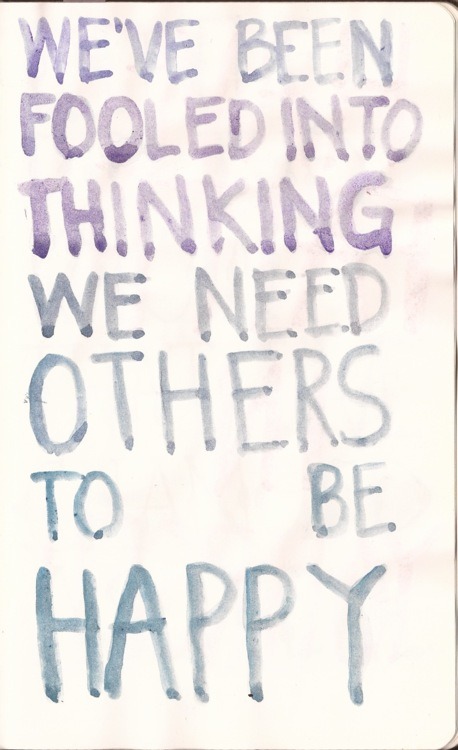 WE'VE BEEN
FOOLED INTO
THINKING
WE NEED
OTHERS
TO BE
HAPPY